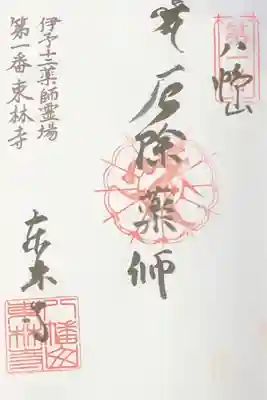 八幡山
厄除薬師
伊予十二薬師霊場
第一番東林寺
東林寺
八幡山
東林寺